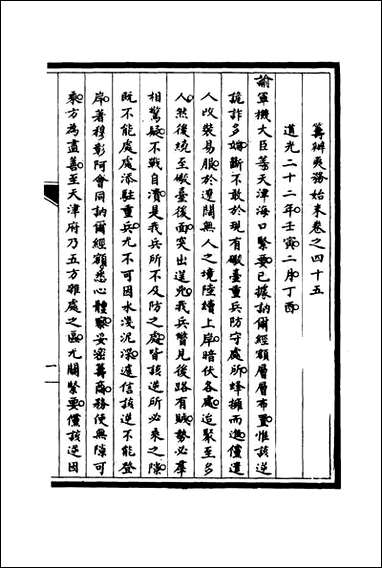 籌辦夷務始末卷之四十五
道光二十二年壬寅二月丁酉
諭軍機大臣等天津海口緊要已據訥爾經額層層布置惟該逆
詭詐多端斷不敢於現有礮臺重兵防守處所蜂擁而進儻遣
人改裝易服於遼闊無人之境陸續上岸暗伏各處迨聚至多
人然後繞至礮臺後面突出逆兇我兵瞥見後路有賊勢必羣
相驚疑不戰自潰是我兵所不及防之處皆該逆所必乘之隙
既不能處處添駐重兵尤不可因水淺泥深遽信該逆不能登
岸著穆彰阿會同訥爾經額悉心體察妥密籌商務使無隙可
乘方為盡善至天津府乃五方雜處之區尤關緊要儻該逆因
一